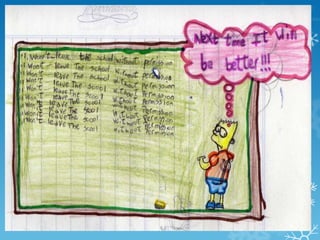 I Won't leave the school without permission
I Won't leave The school without permission
I Won't leave The school without Permission
I Won't leave The School without Permission
I Won't leave The Scool without Permission
I Won't leave The Scool without Permission
I Won't leave The Scool without Permission
I Won't leave The Scool without Permission
Next time It Will
be better!!!